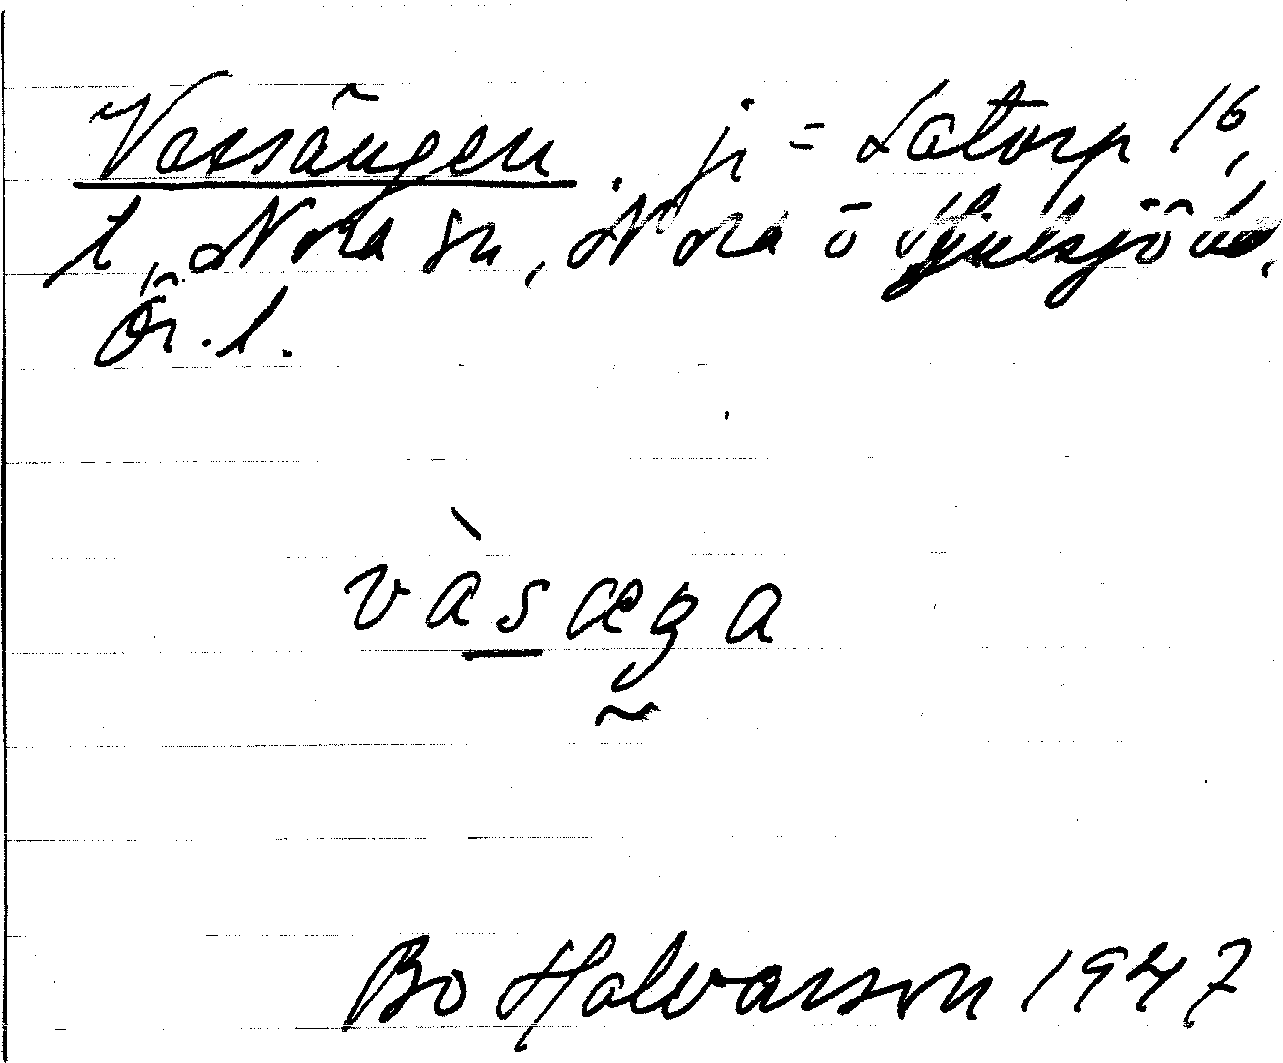 Vassängen. ji = Latorp 16,
t, Nora sn, Nora o Hjulsjö
Ör. l.
vàsæga
Bo Halvarson 1947